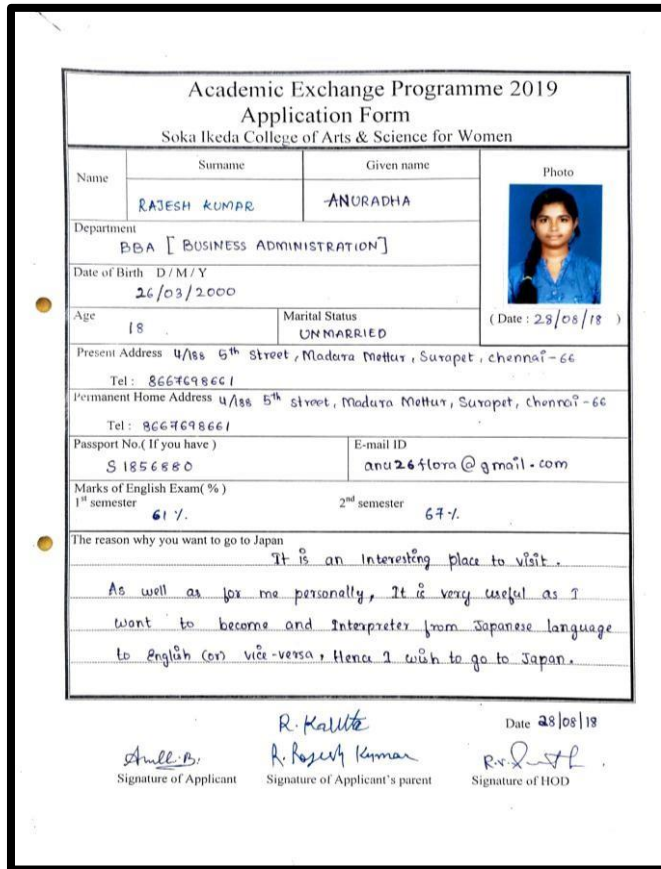 Academic Exchange Programme 2019
Application Form
Soka Ikeda College of Arts & Science for Women
Name
Surname
Given name
Photo
RAJESH KUMAR
ANURADHA
Department
BBA [ BUSINESS ADMINISTRATION]
Date of Birth D / M / Y
26/03/2000
Age
18
Marital Status
UNMARRIED
( Date : 28/08/18 )
Present Address 4/188 5th Street, Madura Mettur, Surapet, chennai-66
Tel : 8667698661
Permanent Home Address 4/188 5th street, Madura Mettur, Surapet, chennai-66
Tel : 8667698661
Passport No.( If you have )
S 1856880
E-mail ID
anu26flora@gmail.com
Marks of English Exam( % )
1st semester
61 %
2nd semester
67%
The reason why you want to go to Japan
It is an Interesting place to visit.
As well as for me personally, It is very useful as I
want to become and Interpreter from Japanese language
to English (or) vice-versa, Hence I wish to go to Japan.
Date 28/08/18
R. Rajesh Kumar
Signature of Applicant
Signature of Applicant's parent
Signature of HOD